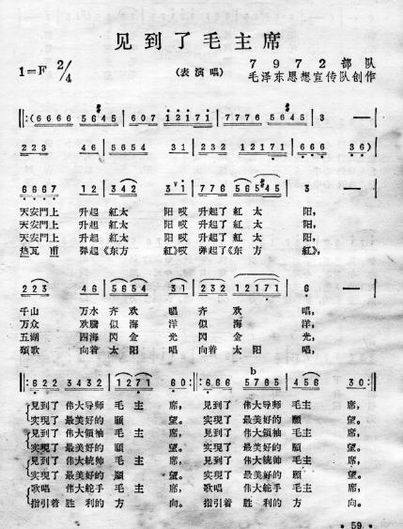 见到了毛主席
1=F 2/4
(表演唱)
7972部队
毛泽东思想宣传队创作
‖:(6666 5645 | 607 12171 | 7776 5645 | 3 — |
223 46 | 5654 31 | 2171 | 666 36) |
6667 12 | 342 31 | 7776 56545 | 3 — |
天安門上 升起 紅太 阳哎 升起了 紅 太 阳,
天安門上 升起 紅太 阳哎 升起了 紅 太 阳,
天安門上 升起 紅太 阳哎 升起了 紅 太 阳,
热瓦甫 弹起《东方 紅》哎 弹起了《东 方 紅》,
223 46 | 5654 31 | 232 12171 | 6 — |
千山 万水 齐欢 唱 齐 欢 唱,
万众 欢騰 似海 洋 似 海 洋,
五湖 四海 閃金 光 閃 金 光,
頌歌 向着 太阳 唱 向着 太 阳 唱,
‖: 622 3432 | 1271 60 :‖: 666 5765 | 456 30 :‖
見到了 伟大导师 毛 主 席, 見到了 伟大导师 毛 主 席,
实現了 最美好的 願 望。 实現了 最美好的 願 望。
見到了 伟大領袖 毛 主 席, 見到了 伟大領袖 毛 主 席,
实現了 最美好的 願 望。 实現了 最美好的 願 望。
見到了 伟大統帅 毛 主 席, 見到了 伟大統帅 毛 主 席,
实現了 最美好的 願 望。 实現了 最美好的 願 望。
歌唱 伟大舵手 毛 主 席, 歌唱 伟大舵手 毛 主 席,
指引着 胜利的 方 向。 指引着 胜利的 方 向。
· 59 ·